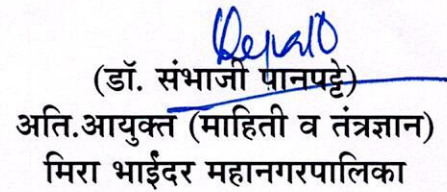 (डॉ. संभाजी पानपट्टे)
अति.आयुक्त (माहिती व तंत्रज्ञान)
मिरा भाईंदर महानगरपालिका